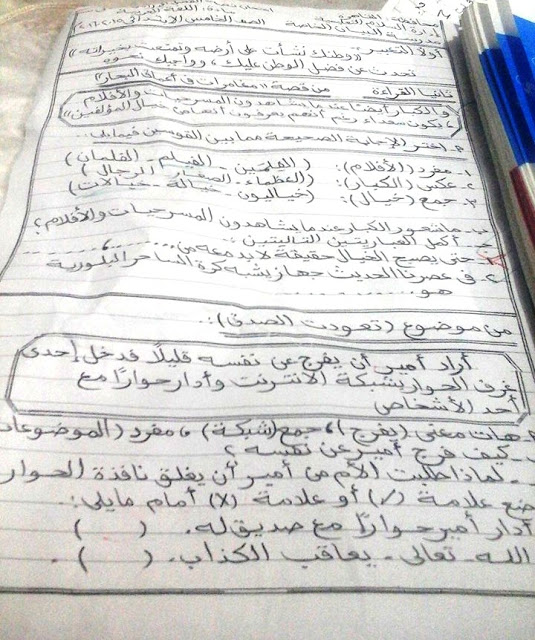 إدارة السلام التعليمية
الصف الخامس الابتدائى ٢٠١٥/٢٠١٦
أولاً التعبير: "وطنك نشأت على أرضه وتمتعت بخيراته"
تحدث عن فضل الوطن عليك، وواجبك نحوه
ثانياً القراءة من قصة "مغامرات فى أعماق البحار"
"والكبار أيضاً عندما يشاهدون المسرحيات والأفلام
، يكون سعداء رغم أنهم يعرفون أنها من خيال المؤلفين"
اختر الإجابة الصحيحة مما بين القوسين فيما يلى:
١- مفرد (الأفلام): (الفلمين - الفيلم - الفلمان)
٢- عكس (الكبار): (العظماء - الصغار - الرجال)
٣- جمع (خيال): (خياليون - خيالة - خيالات)
ب- ما شعور الكبار عندما يشاهدون المسرحيات والأفلام؟
ج- أكمل العبارتين التاليتين:
حتى يصبح الخيال حقيقة لابد معه من ..........
٢- فى عصرنا الحديث جهاز يشبه كرة الساحر البلورية
هو ..........
من موضوع (تعودت الصدق):
أراد أمير أن يفرج عن نفسه قليلاً فدخل إحدى
غرف الحوار بشبكة الانترنت وأدار حواراً مع
أحد الأشخاص
هات معنى (يفرج)، جمع (شبكة)، مفرد (الموضوعات
- كيف فرج أمير عن نفسه؟
- لماذا طلبت الأم من أمير أن يغلق نافذة الحوار
ضع علامة (√) أو علامة (X) أمام ما يلى:
أدار أمير حواراً مع صديق له. ( )
الله - تعالى - يعاقب الكذاب. ( )